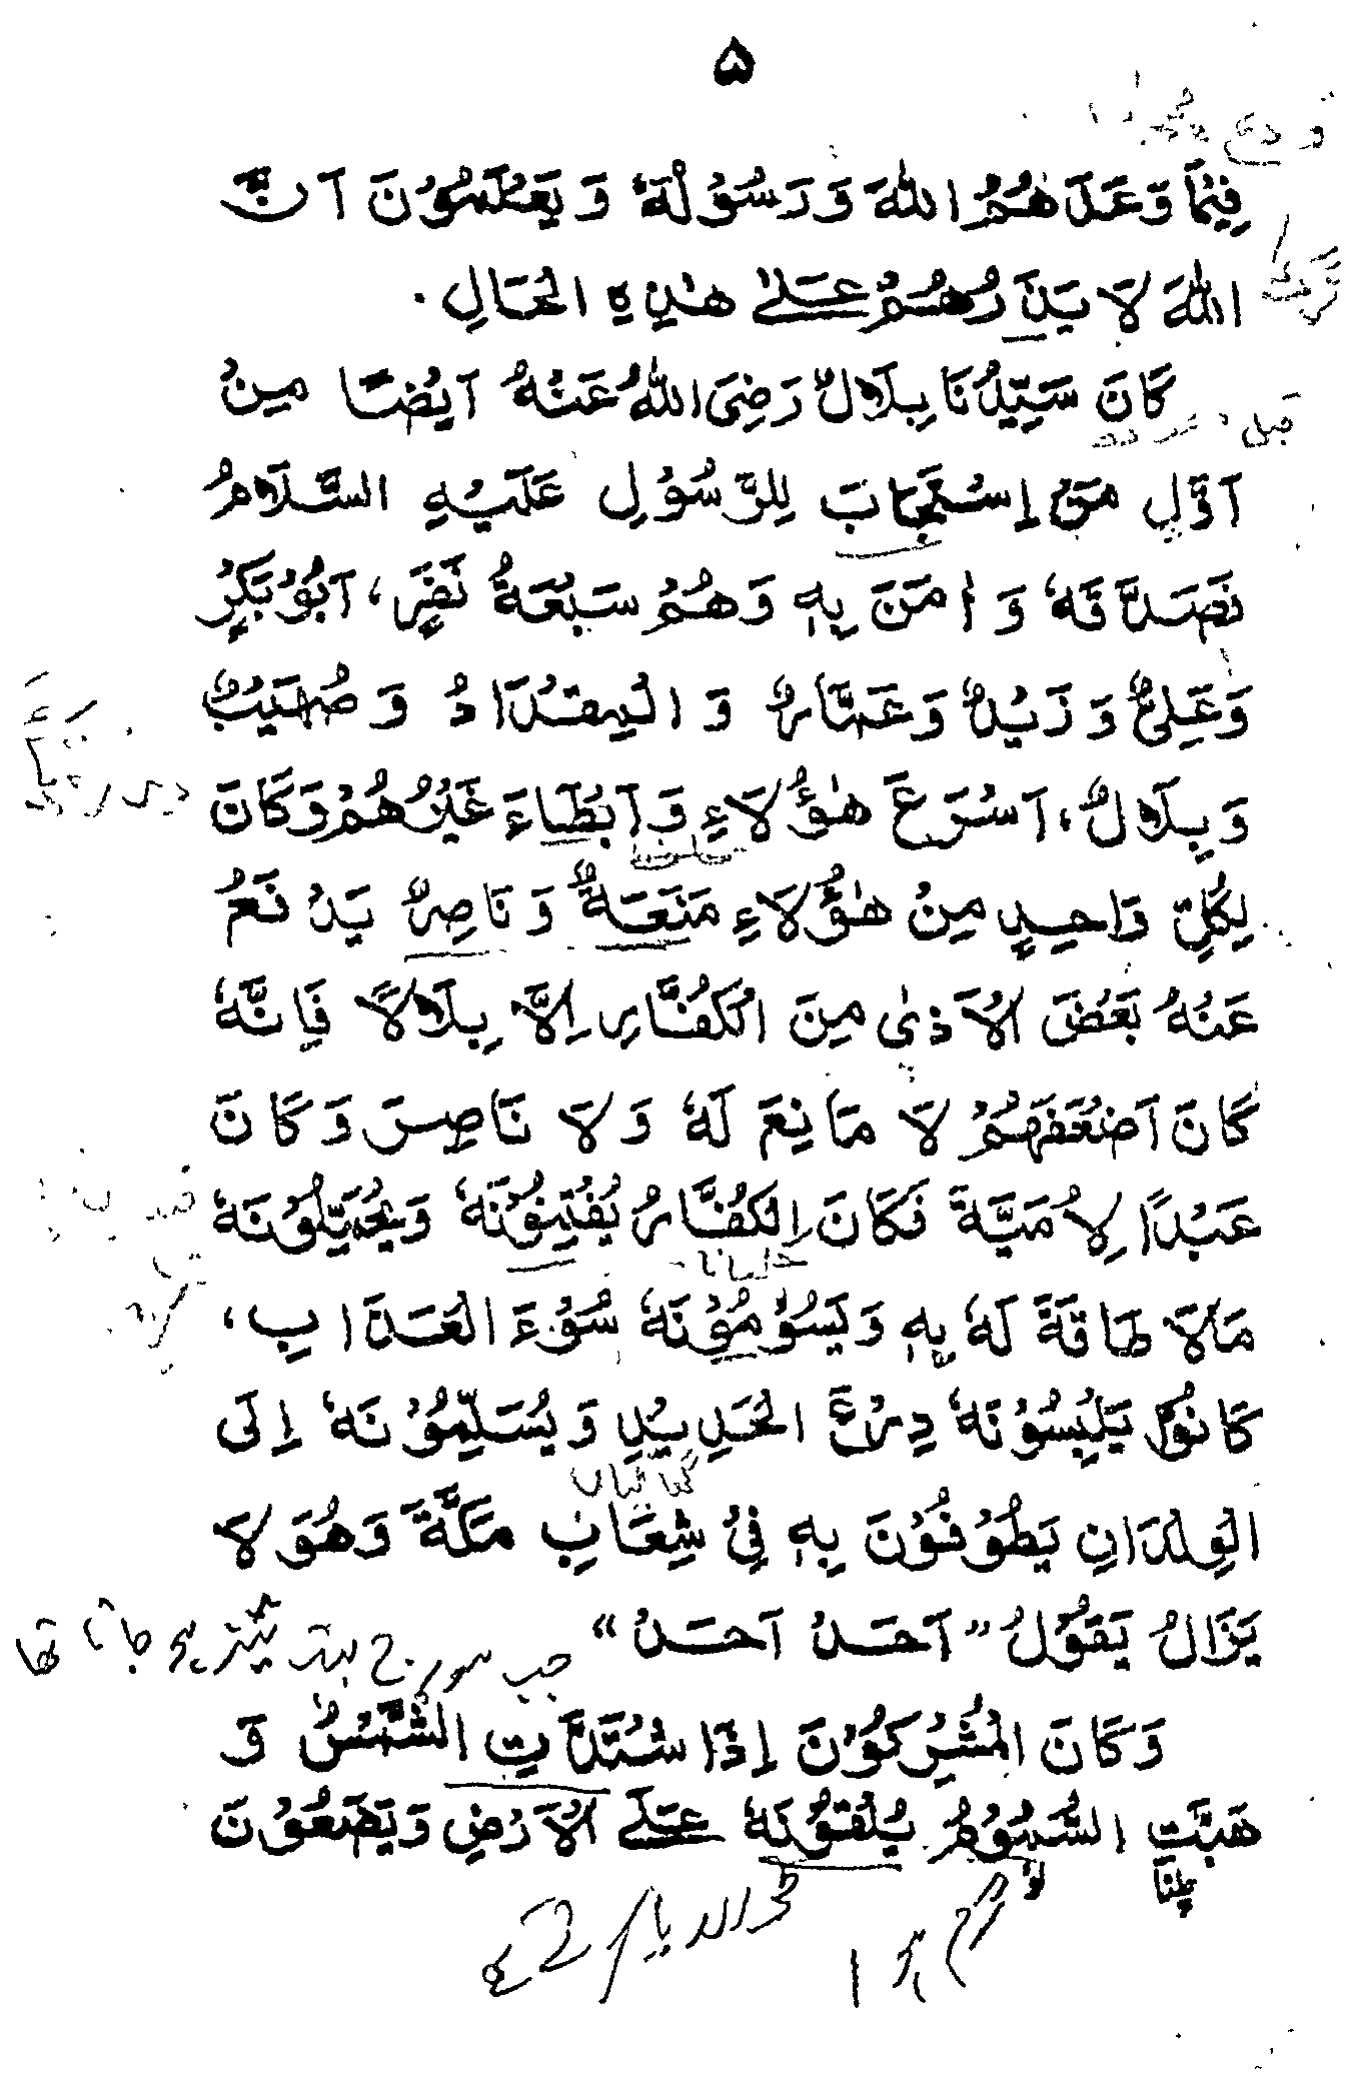 ۵
فِيْمَا وَعَدَهُمُ اللهَ وَرَسُوْلُهٗ وَ يَعْلَمُوْنَ اَنَّ
اللهَ لَا يَذَرُهُمْ عَلٰے هٰذِهِ الْحَالِ.
كَانَ سَيِّدُنَا بِلَالٌ رَضِیَ اللهُ عَنْهُ اَيْضًا مِنْ
اَوَّلِ مَنْ اِسْتَجَابَ لِلرَّسُوْلِ عَلَيْهِ السَّلَامُ
نَصَدَّقَهٗ وَ اٰمَنَ بِهٖ وَهُمْ سَبْعَةُ نَفَرٍ، اَبُوْبَكْرٍ
وَعَلِیٌّ وَ زَيْدٌ وَعَمَّارٌ وَ الْمِقْدَادُ وَ صُهَيْبٌ
وَ بِلَالٌ، اَسْرَعَ هٰؤُلَاءِ وَ اَبْطَاءَ غَيْرُهُمْ وَكَانَ
لِكُلِّ وَاحِدٍ مِنْ هٰؤُلَاءِ مَنَعَةٌ وَ نَاصِرٌ يَدْ نَعُ
عَنْهُ بَعْضَ الْاَذٰی مِنَ الْكُفَّارِ اِلَّا بِلَالًا فَاِنَّهٗ
كَانَ اَضْعَفَهُمْ لَا مَانِعَ لَهٗ وَلَا نَاصِرَ وَكَانَ
عَبْدًا لِاُمَيَّةَ فَكَانَ الْكُفَّارُ يَفْتِنُوْنَهٗ وَيُحَمِّلُوْنَهٗ
مَالَا طَاقَةَ لَهٗ بِهٖ وَيَسُوْمُوْنَهٗ سُوْءَ الْعَذَابِ،
كَانُوْا يَلْبِسُوْنَهٗ دِرْعَ الْحَدِيْدِ وَيُسَلِّمُوْنَهٗ اِلَی
گھاٹیاں
الْوِلْدَانِ يَطُوْفُوْنَ بِهٖ فِیْ شِعَابِ مَكَّةَ وَهُوَ لَا
يَزَالُ يَقُوْلُ "اَحَدْ اَحَدْ"
جب سورج بہت تیز ہو جاتا تھا
وَكَانَ الْمُشْرِكُوْنَ اِذَا شْتَدَّتِ الشَّمْسُ وَ
هَبَّتِ السَّمُوْمُ يُلْقُوْنَهٗ عَلَے الْاَرْضِ وَيَضَعُوْنَ
چلنا لو
گرم ہوا ڈال دیا کرتے